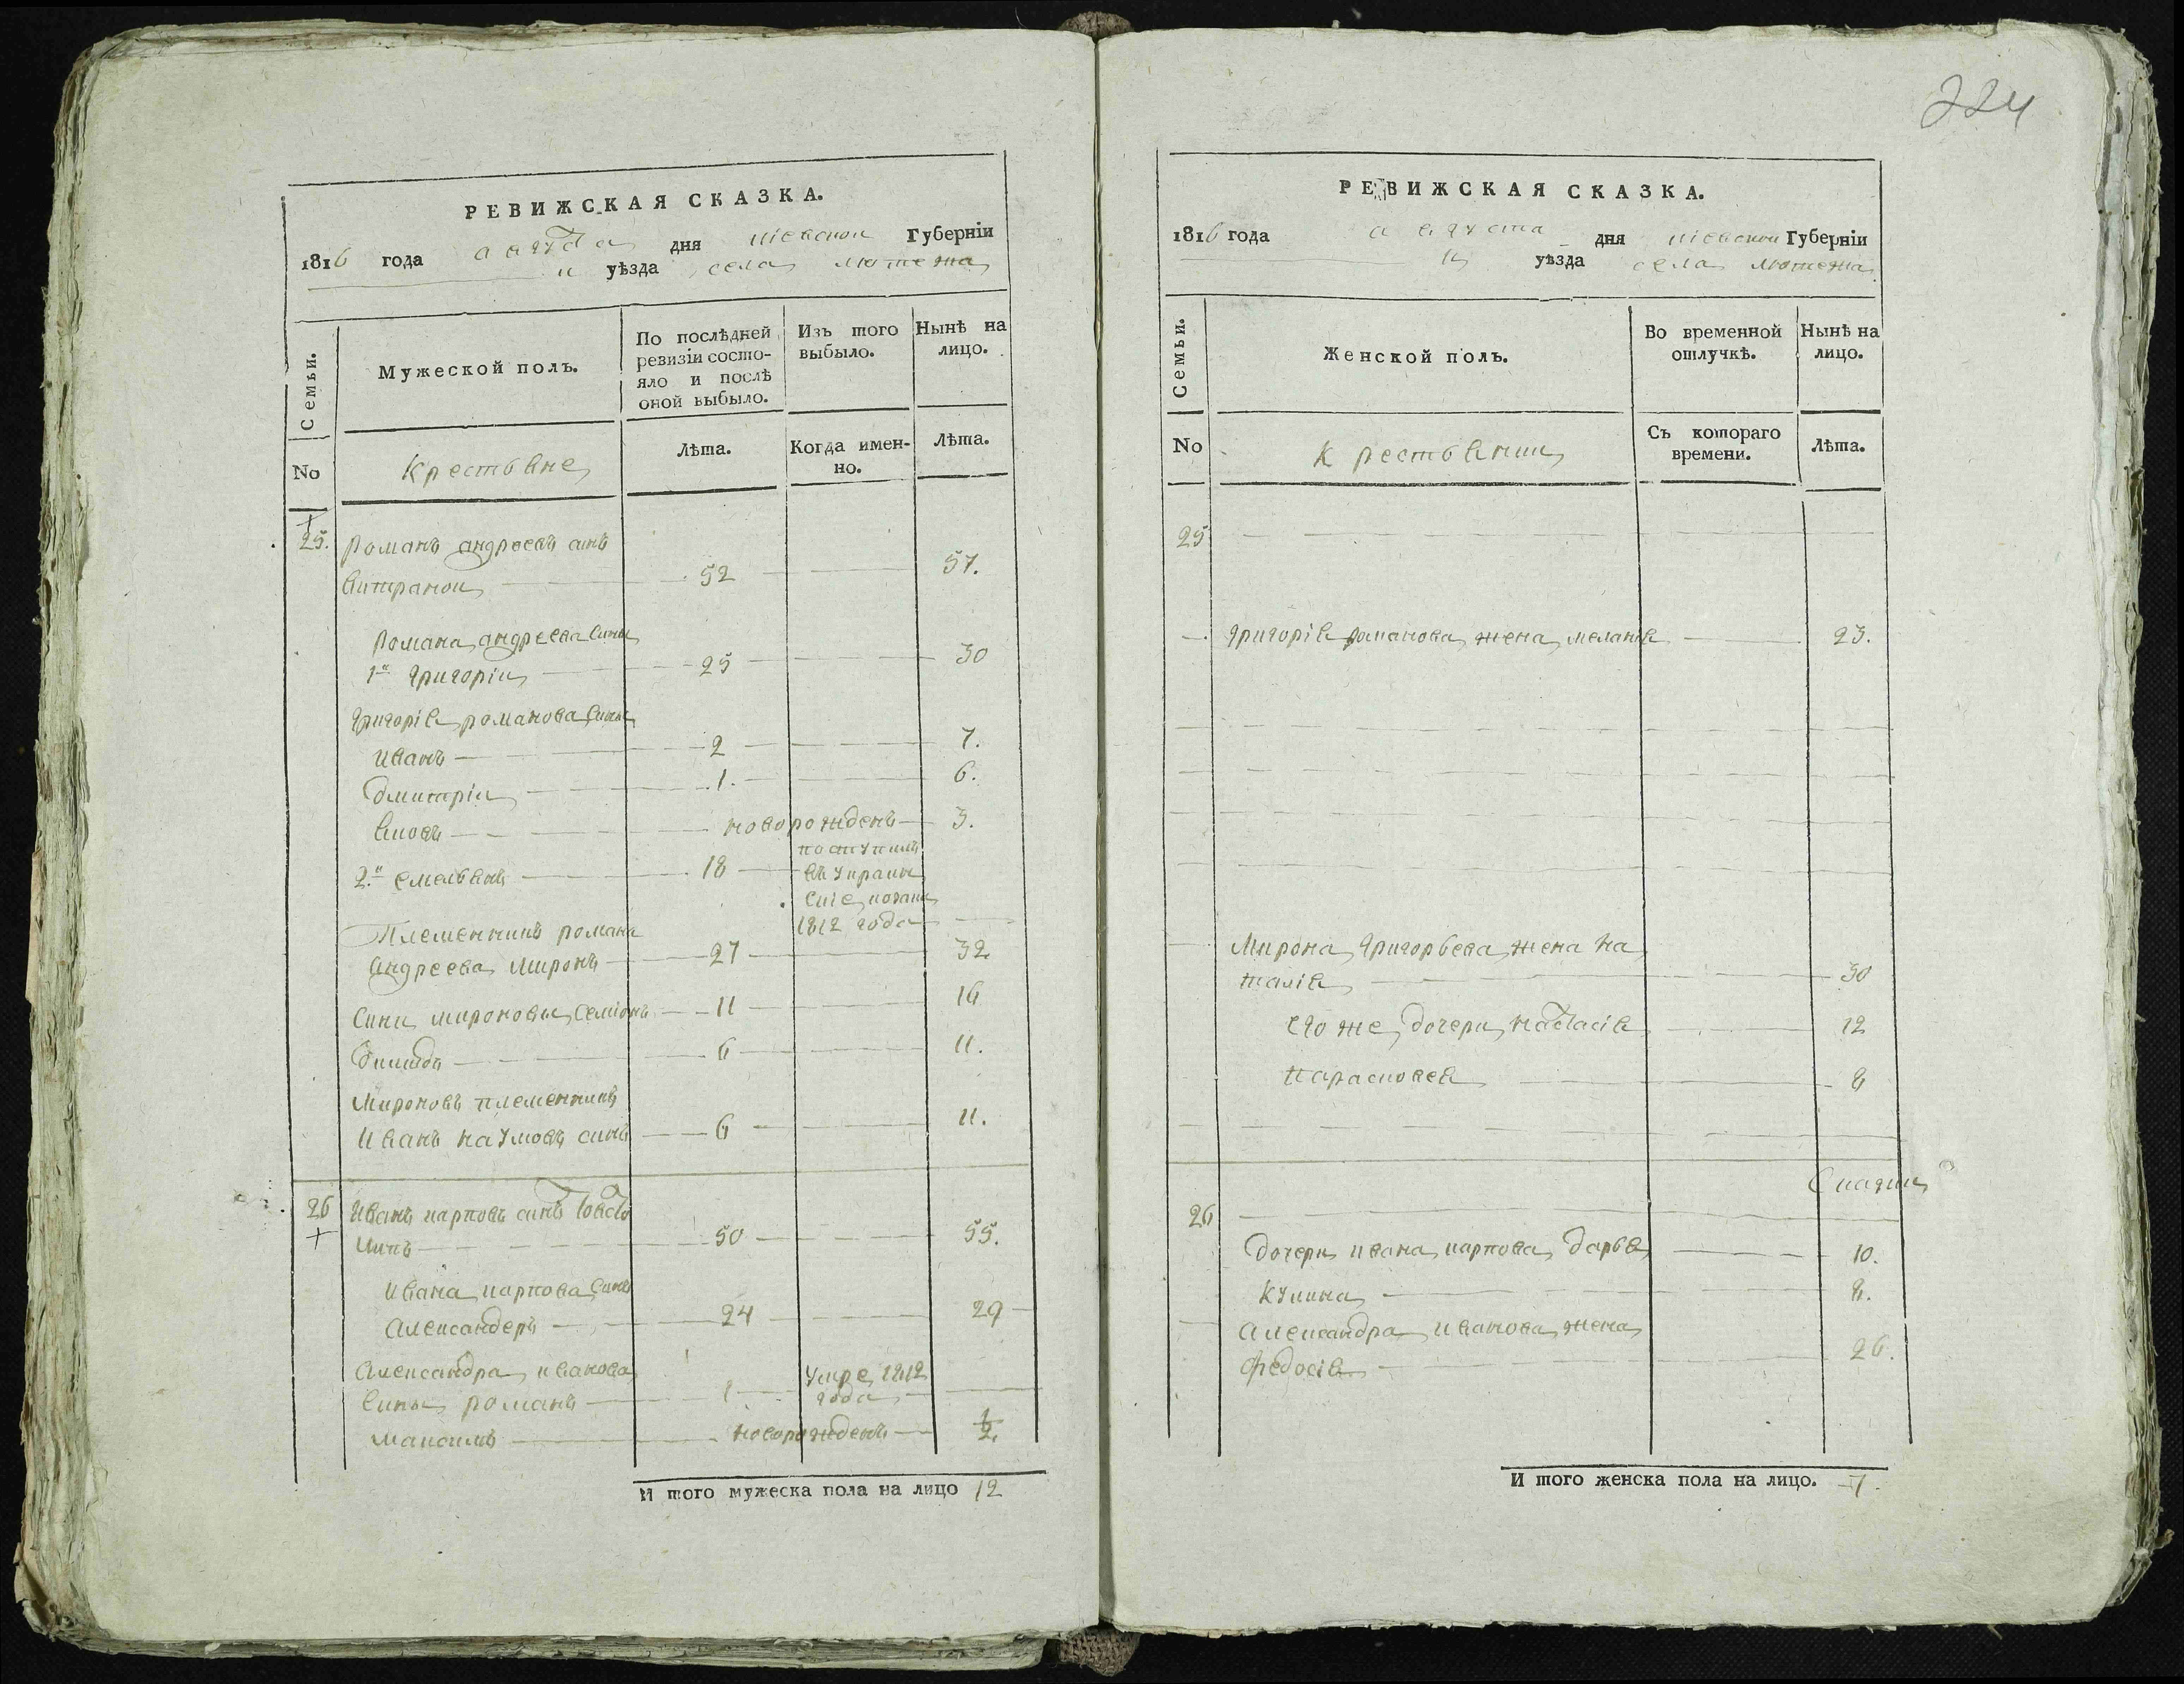 224
РЕВИЖСКАЯ СКАЗКА.
1816 года августа дня киевской Губерніи
и уѣзда села лютежа
Семьи.
No
Мужеской полъ.
Крестьяне
По послѣдней ревизіи состо-
яло и послѣ
оной выбыло.
Лѣта.
Изъ того
выбыло.
Когда имен-
но.
Нынѣ на
лицо.
Лѣта.
25. Романъ андреевъ синъ
52 57.
Романа андреева сины
1й Григорій 25 30
Григорія романова сины
иванъ 2 7.
дмитрій 1. 6.
яковъ новорожденъ 3.
2й емельянъ 18 поступилъ
въ украин
ские козаки
1812 года
Племенникъ романа
андреева миронъ 27 32
сини мироновы семіонъ 11 16
6 11.
мироновъ племенникъ
иванъ наумовъ синъ 6 11.
26 иванъ карповъ синъ
50 55.
ивана карпова сины
александеръ 24 29
александра иванова
сины романъ 1 умре 1812
года
максимъ новорожденъ 1/2
И того мужеска пола на лицо 12
РЕВИЖСКАЯ СКАЗКА.
1816 года августа дня киевской Губерніи
и уѣзда села лютежа
Семьи.
No
Женской полъ.
Крестьянки
Во временной
отлучкѣ.
Съ котораго
времени.
Нынѣ на
лицо.
Лѣта.
25
григорія романова жена меланія 23.
мирона григорьева жена на
талія 30
его же дочери настасія 12
парасковея 8
26
дочери ивана карпова дарья 10.
кулина 8.
александра иванова жена
федосія 26.
И того женска пола на лицо. 7.